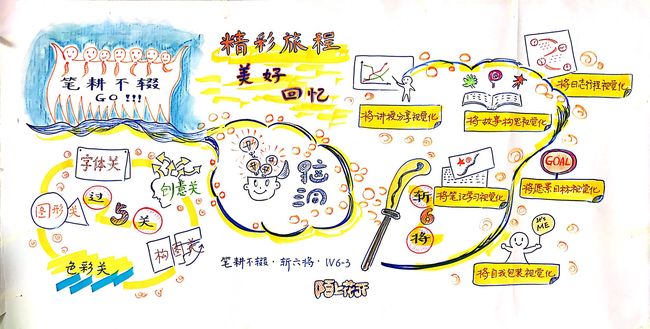 笔耕不辍
GO!!!
精彩旅程
美好
回忆
字体关
创意关
图形关
过5关
构图关
色彩关
脑洞
将讲授分享视觉化
将故事构思视觉化
将日志行程视觉化
将笔记学习视觉化
GOAL
将愿景目标视觉化
斩6将
It's
ME
将自我包装视觉化
笔耕不辍·斩六将·1V6-3
陌上花开